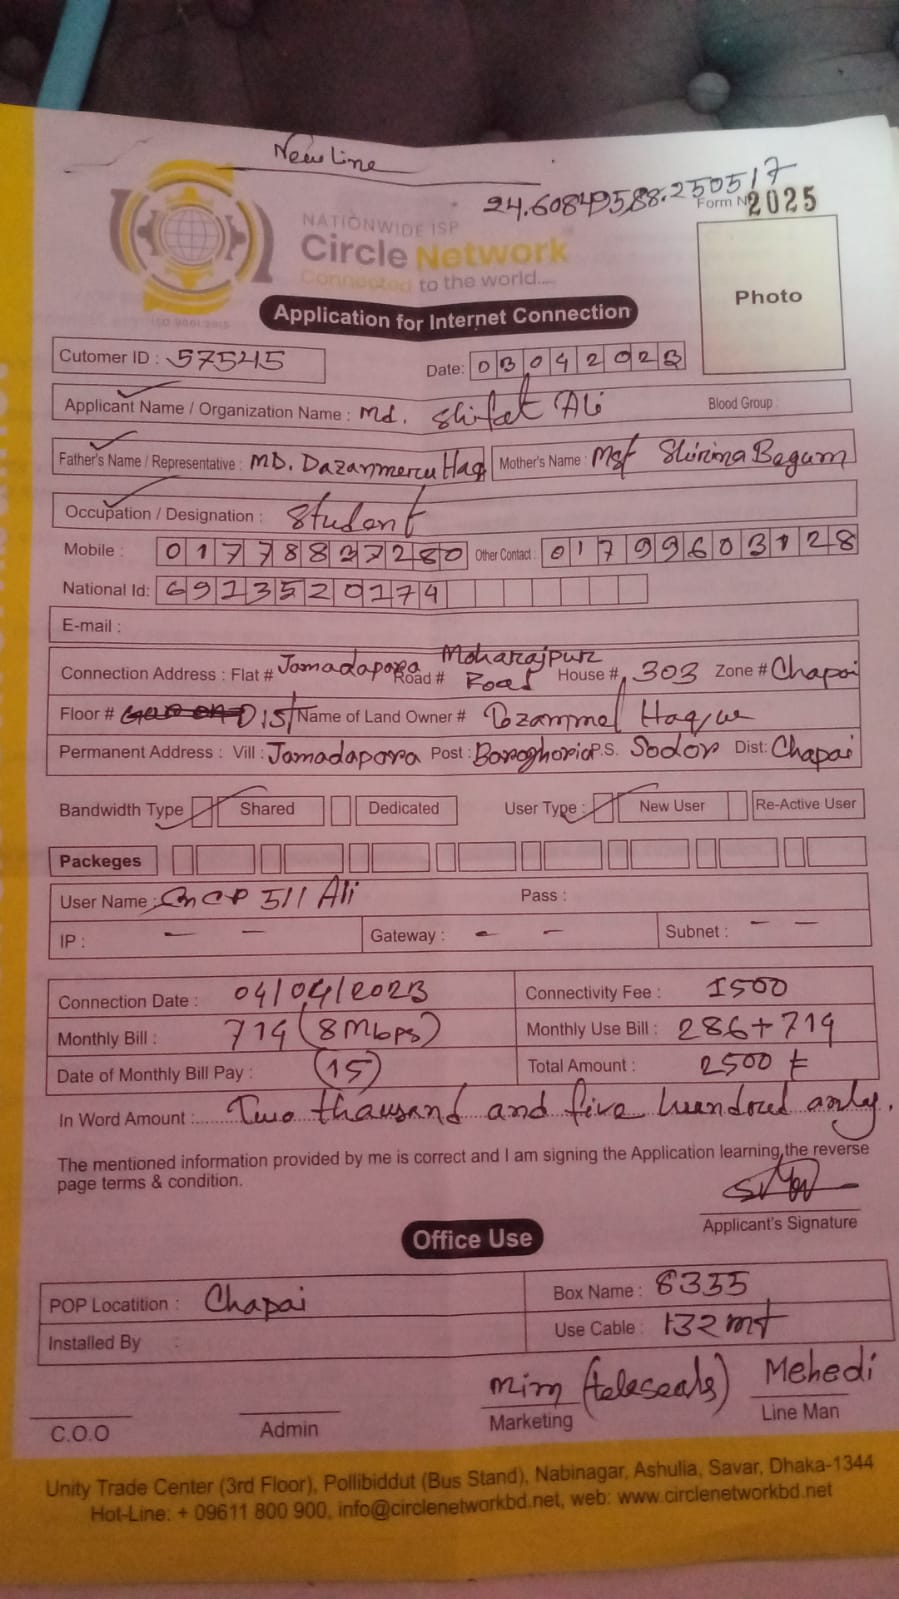 New Line
24.60849588.250517
Form No 2025
NATIONWIDE ISP
Circle Network
Connected to the world....
ISO 9001:2015
Photo
Application for Internet Connection
Cutomer ID : 57545
Date: 03042023
Applicant Name / Organization Name : Md. Shifat Ali Blood Group :
Father's Name / Representative : MD. Dazammeru Haq Mother's Name : Mst Shirina Begum
Occupation / Designation : Student
Mobile : 01778837280 Other Contact : 01799603128
National Id: 6913520174
E-mail :
Connection Address : Flat # Jamadapara Road # Moharajpur Road House # 303 Zone # Chapai
Floor # Dist Name of Land Owner # Dozammel Haque
Permanent Address : Vill : Jamadapara Post : Baroghoria P.S. Sodor Dist: Chapai
Bandwidth Type Shared Dedicated User Type : New User Re-Active User
Packeges
User Name : CnCP 511 Ali Pass :
IP : - - Gateway : - - Subnet : - -
Connection Date : 04/04/2023 Connectivity Fee : 1500
Monthly Bill : 714 (8Mbps) Monthly Use Bill : 286+714
Date of Monthly Bill Pay : (15) Total Amount : 2500 ৳
In Word Amount : Two thausand and five hundred only.
The mentioned information provided by me is correct and I am signing the Application learning the reverse
page terms & condition.
Applicant's Signature
Office Use
POP Locatition : Chapai Box Name : 8355
Installed By : Use Cable : 132 mt
Mim (teleseals) Mehedi
C.O.O Admin Marketing Line Man
Unity Trade Center (3rd Floor), Pollibiddut (Bus Stand), Nabinagar, Ashulia, Savar, Dhaka-1344
Hot-Line: + 09611 800 900, info@circlenetworkbd.net, web: www.circlenetworkbd.net